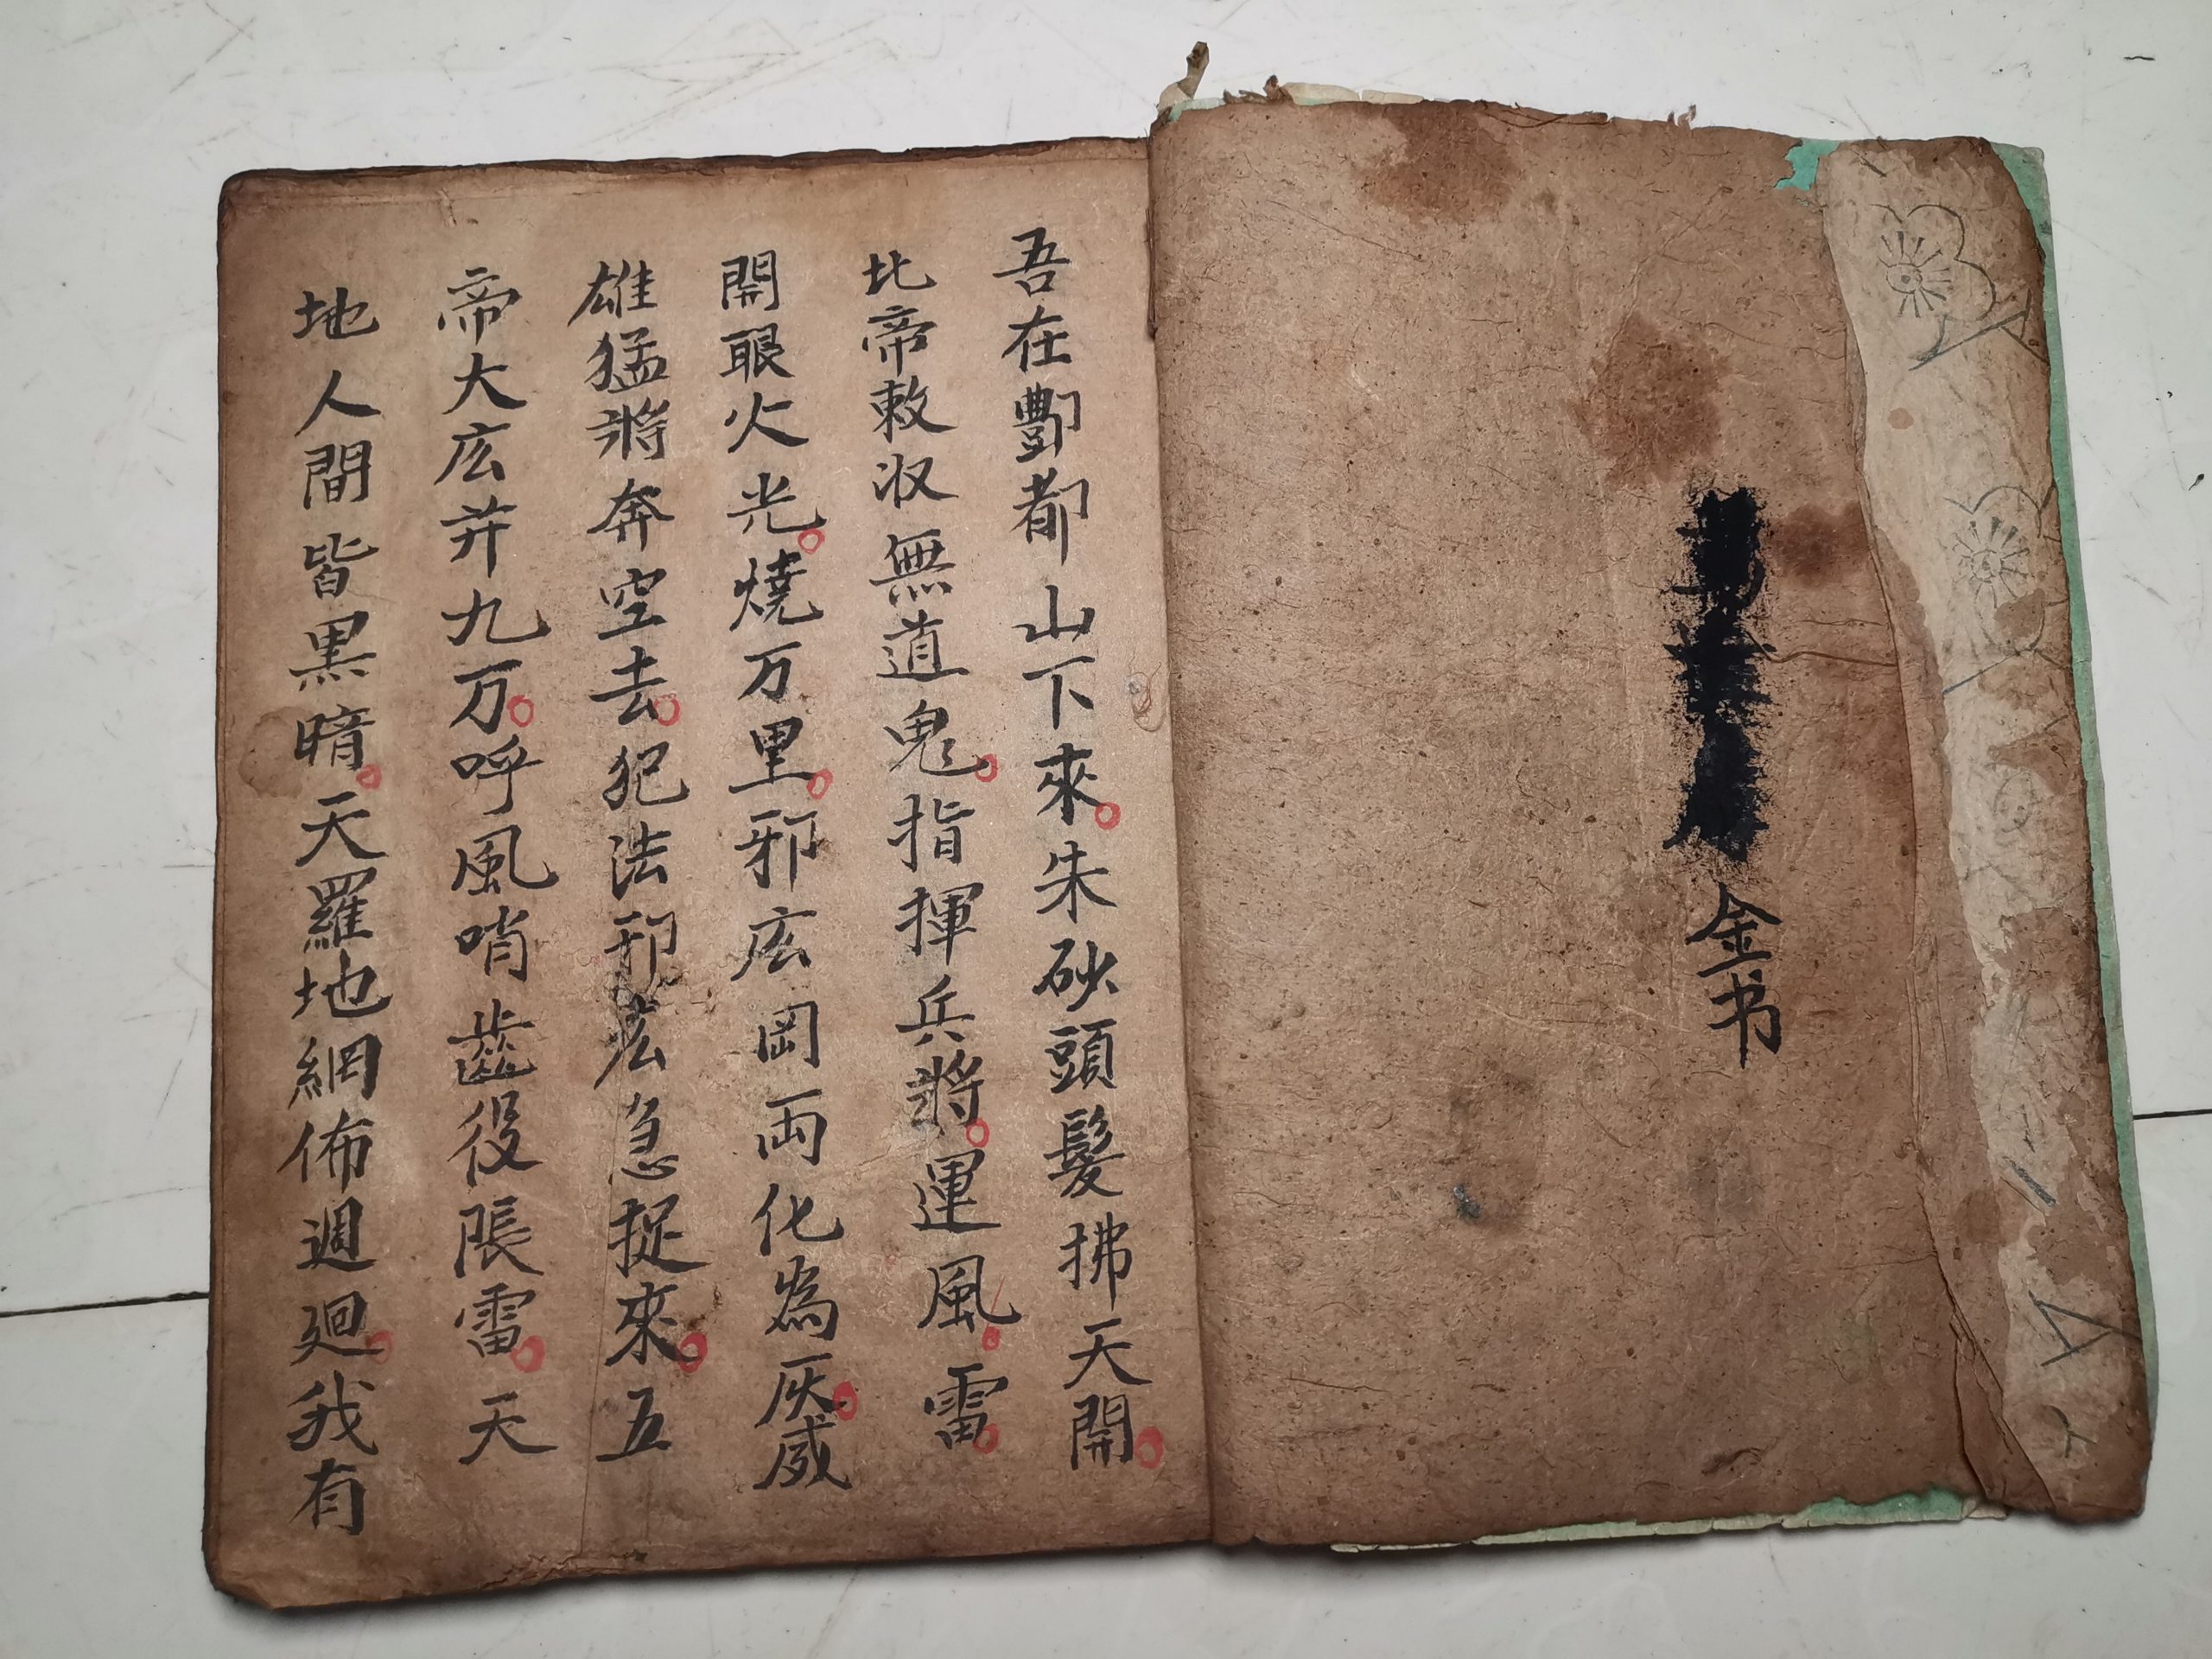 金书
吾在酆都山下來。朱砂頭髮拂天開。
北帝敕収無道鬼。指揮兵將。運風。雷。
開眼火光。燒万里。邪庅罔両化為灰。威
雄猛將奔空去。犯法邪庅急捉來。五
帝大庅并九万。呼風哨齒役張雷。天
地人間皆黒暗。天羅地網佈週廻。我有